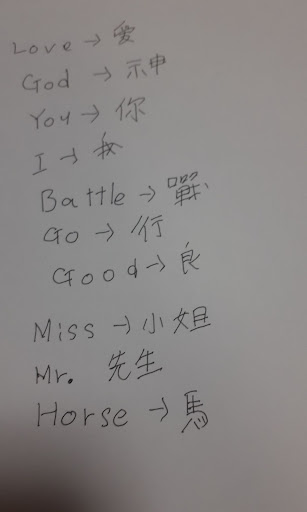 Love → 愛
God → 神
You → 你
I → 我
Battle → 戰
Go → 行
Good → 良
Miss → 小姐
Mr. 先生
Horse → 馬